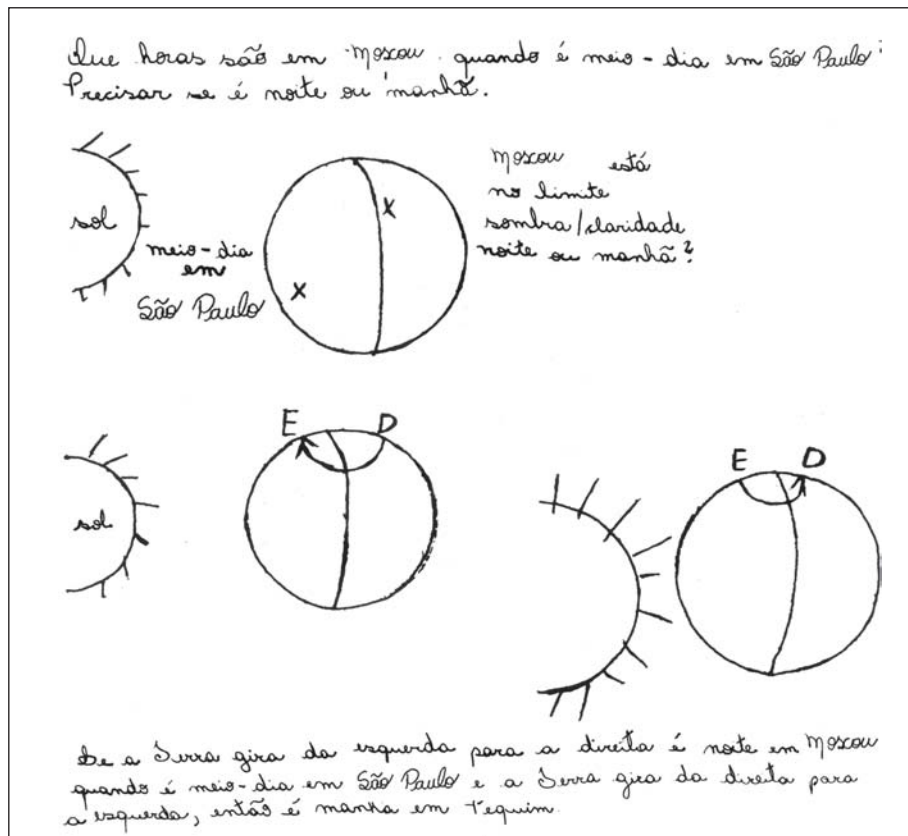 Que horas são em Moscou quando é meio-dia em São Paulo?
Precisar se é noite ou manhã.
sol
meio-dia
em
São Paulo
x
x
Moscou está
no limite
sombra/claridade
noite ou manhã?
sol
E D
E D
Se a Terra gira da esquerda para a direita é noite em Moscou
quando é meio-dia em São Paulo e a Terra gira da direita para
a esquerda, então é manha em Pequim.